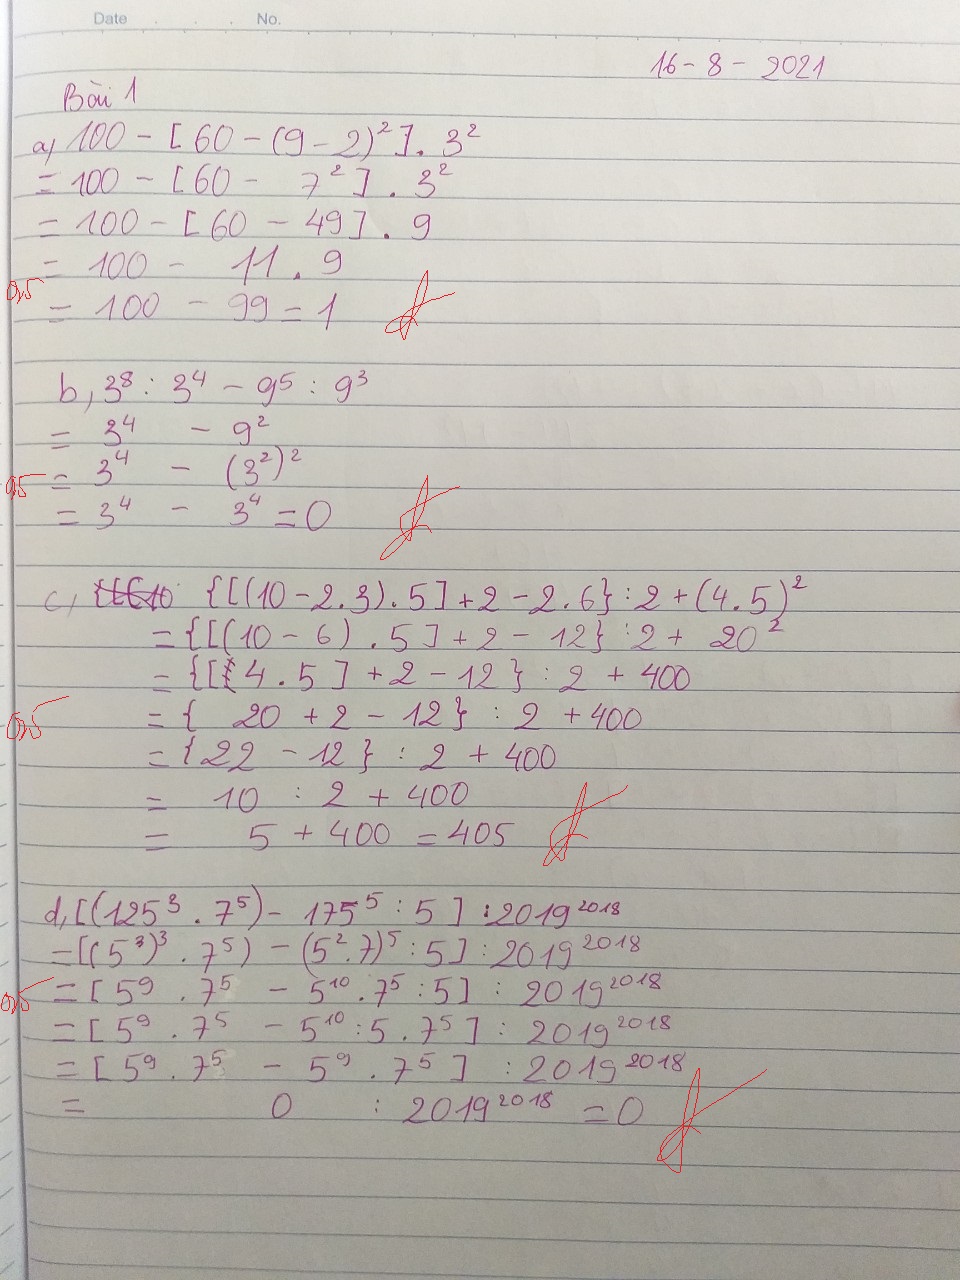 Date . . . No.
16 - 8 - 2021
Bài 1
a, 100 - [60 - (9 - 2)²]. 3²
= 100 - [60 - 7²] . 3²
= 100 - [60 - 49] . 9
= 100 - 11 . 9
0,5
= 100 - 99 = 1
b, 3⁸ : 3⁴ - 9⁵ : 9³
= 3⁴ - 9²
0,5 = 3⁴ - (3²)²
= 3⁴ - 3⁴ = 0
c, {[(10 {[(10 - 2.3).5] + 2 - 2.6} : 2 + (4.5)²
= {[(10 - 6) . 5] + 2 - 12} : 2 + 20²
= {[4 . 5] + 2 - 12} : 2 + 400
0,5 = { 20 + 2 - 12} : 2 + 400
= {22 - 12} : 2 + 400
= 10 : 2 + 400
= 5 + 400 = 405
d, [(125³ . 7⁵) - 175⁵ : 5] : 2019²⁰¹⁸
= [(5³)³ . 7⁵) - (5².7)⁵ : 5] : 2019²⁰¹⁸
0,5 = [5⁹ . 7⁵ - 5¹⁰ . 7⁵ : 5] : 2019²⁰¹⁸
= [5⁹ . 7⁵ - 5¹⁰ : 5 . 7⁵] : 2019²⁰¹⁸
= [5⁹ . 7⁵ - 5⁹ . 7⁵] : 2019²⁰¹⁸
= 0 : 2019²⁰¹⁸ = 0